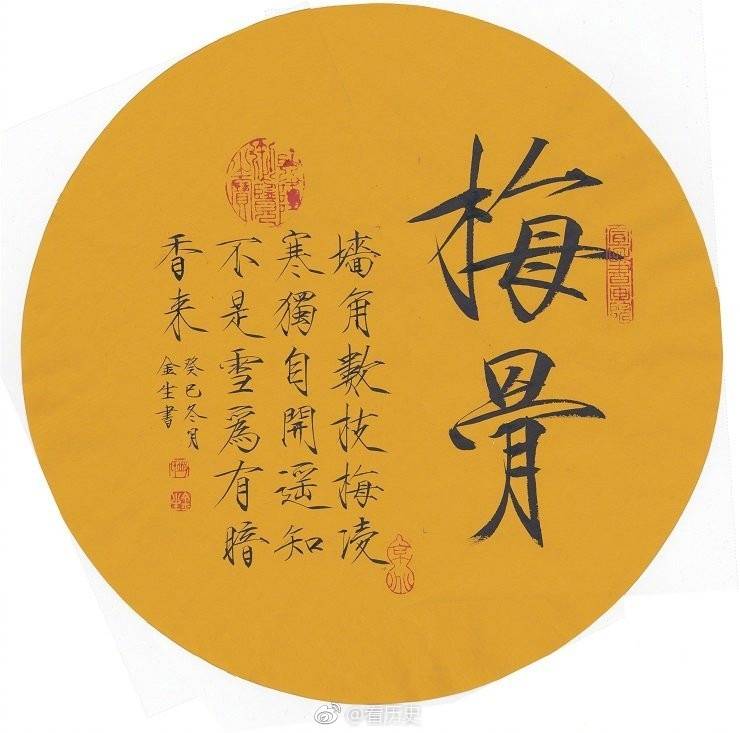 梅骨
墻角數枝梅凌
寒獨自開遥知
不是雪爲有暗
香来
癸巳冬月
金生書
@看历史